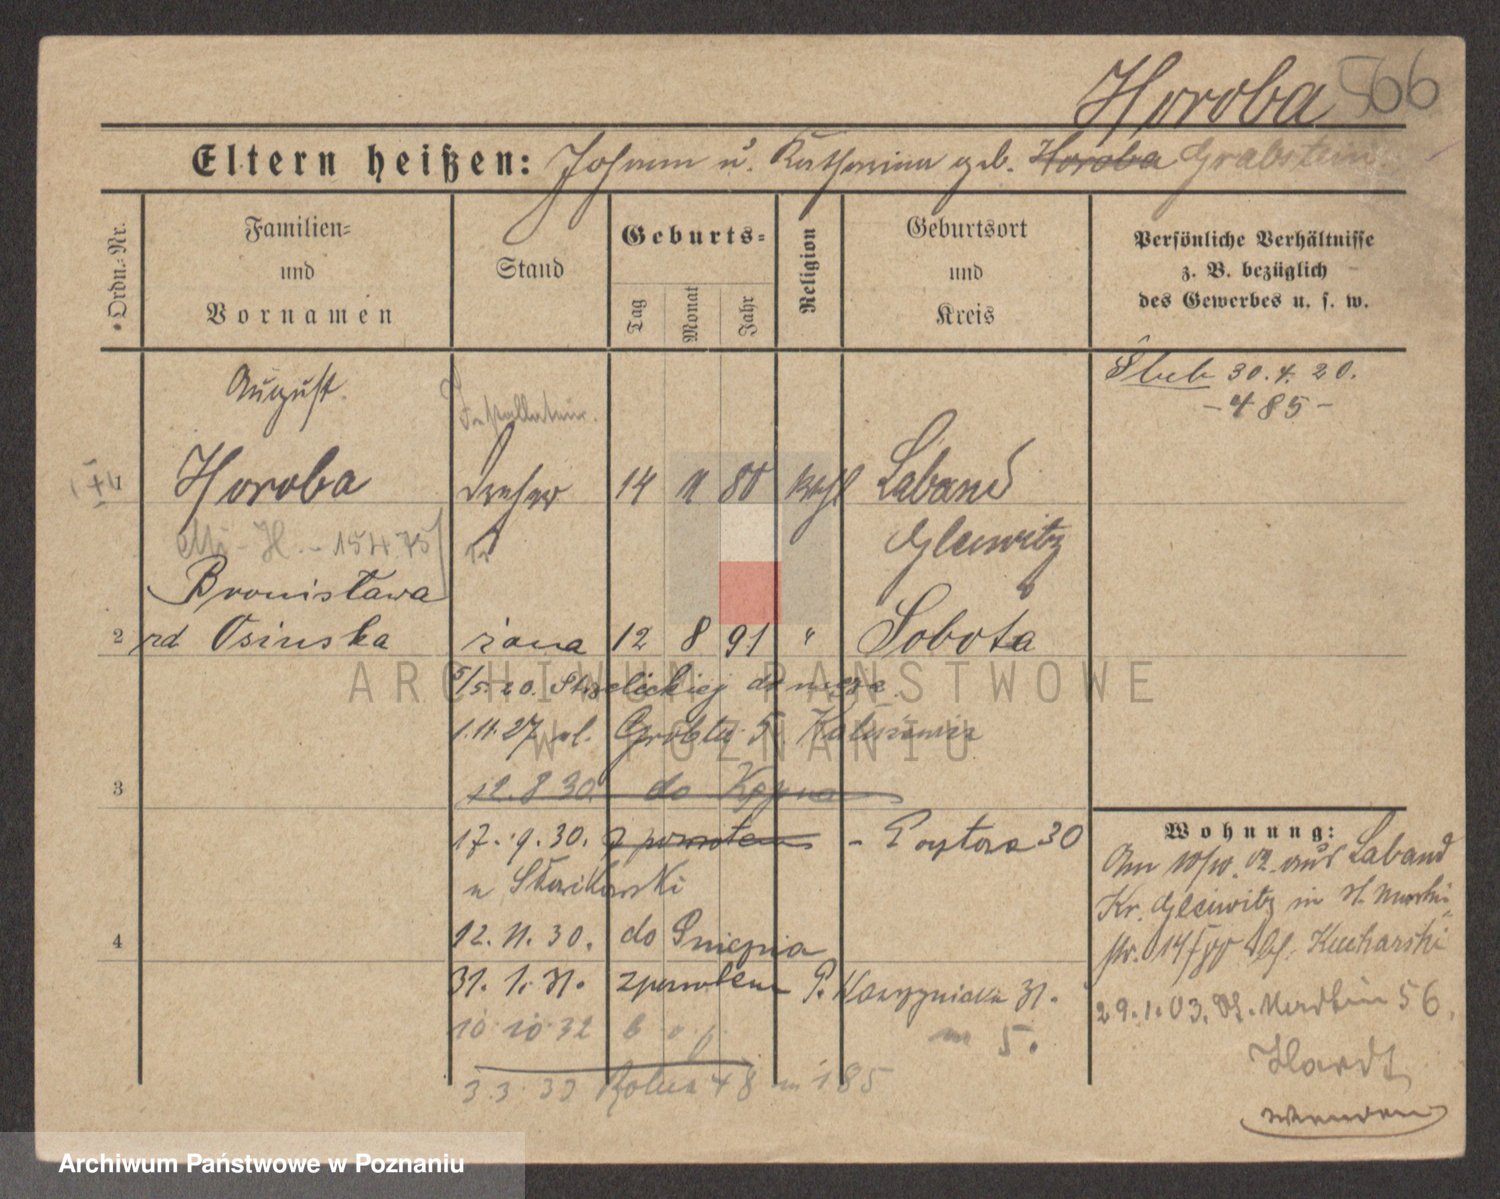 Horoba 566
Eltern heißen: Johann u. Katharina geb. Horoba Grabstein
Ordn.-Nr.
Familien-
und
Vornamen
Stand
Geburts-
Tag
Monat
Jahr
Religion
Geburtsort
und
Kreis
Persönliche Verhältnisse
z. B. bezüglich
des Gewerbes u. s. w.
Steb 30.4.20.
- 485 -
August
Installateur.
1 Horoba Dreher 14 11 80 kath Laband
15475 Gleiwitz
Bronisława
2 rd Osinska żona 12 8 91 " Sobota
5/5.20. Strzeleckiej do męża
1.11.27 ul. Grobla 5
3 12.8.30. do Kępna
17.9.30. z powrotem - 30
u
4 12.11.30. do
31.1.31. z powrotem P. 31.
10.10.32 5.
3.3.33 48 m 185
Wohnung:
Am 10/10. 02 aus Laband
Kr. Gleiwitz in St. Martin
str. 14 bei Kucharski
29.1.03. St. Martin 56.
Hardt
wenden
ARCHIWUM PAŃSTWOWE
W POZNANIU
Archiwum Państwowe w Poznaniu